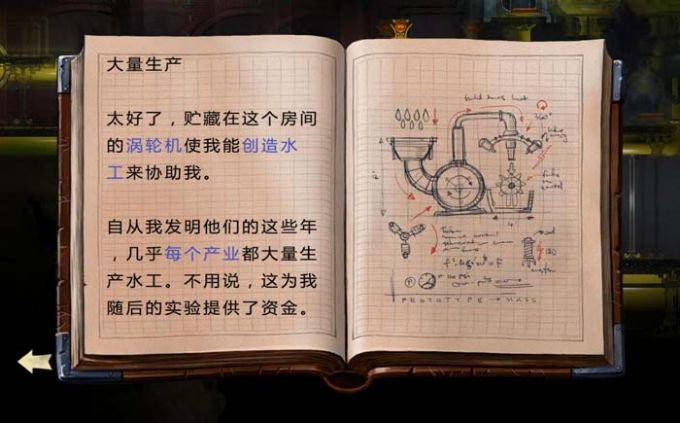 大量生产
太好了，贮藏在这个房间
的涡轮机使我能创造水
工来协助我。
自从我发明他们的这些年
，几乎每个产业都大量生
产水工。不用说，这为我
随后的实验提供了资金。
360°
PROTOTYPE → MASS